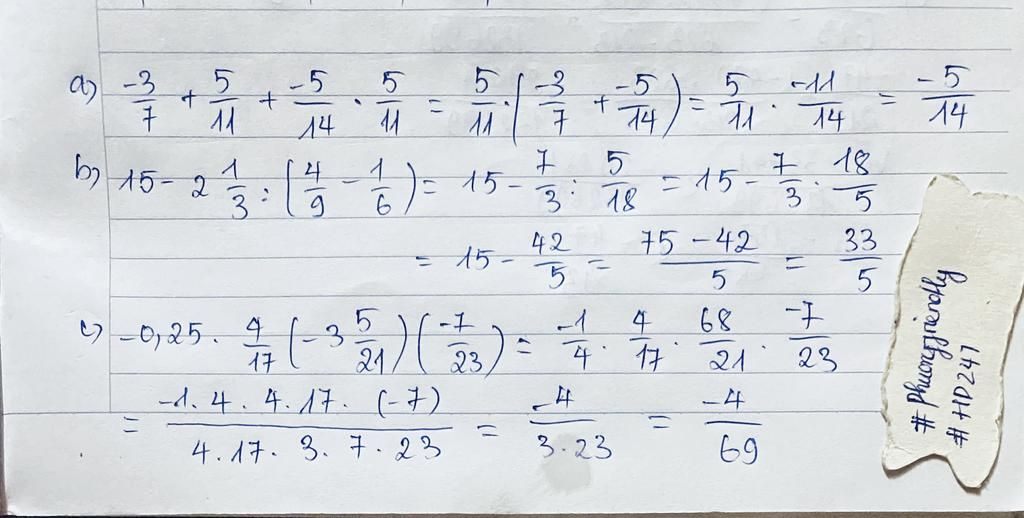 a) -3/7 + 5/11 + -5/14 . 5/11 = 5/11 . (-3/7 + -5/14) = 5/11 . -11/14 = -5/14
b) 15 - 2 1/3 : (4/9 - 1/6) = 15 - 7/3 : 5/18 = 15 - 7/3 . 18/5
= 15 - 42/5 = 75 - 42/5 = 33/5
c) -0,25 . 4/17 (-3 5/21) (-7/23) = -1/4 . 4/17 . 68/21 . -7/23
= -1 . 4 . 4 . 17 . (-7)/4 . 17 . 3 . 7 . 23 = -4/3 . 23 = -4/69
# phuongfriendly
# HD247